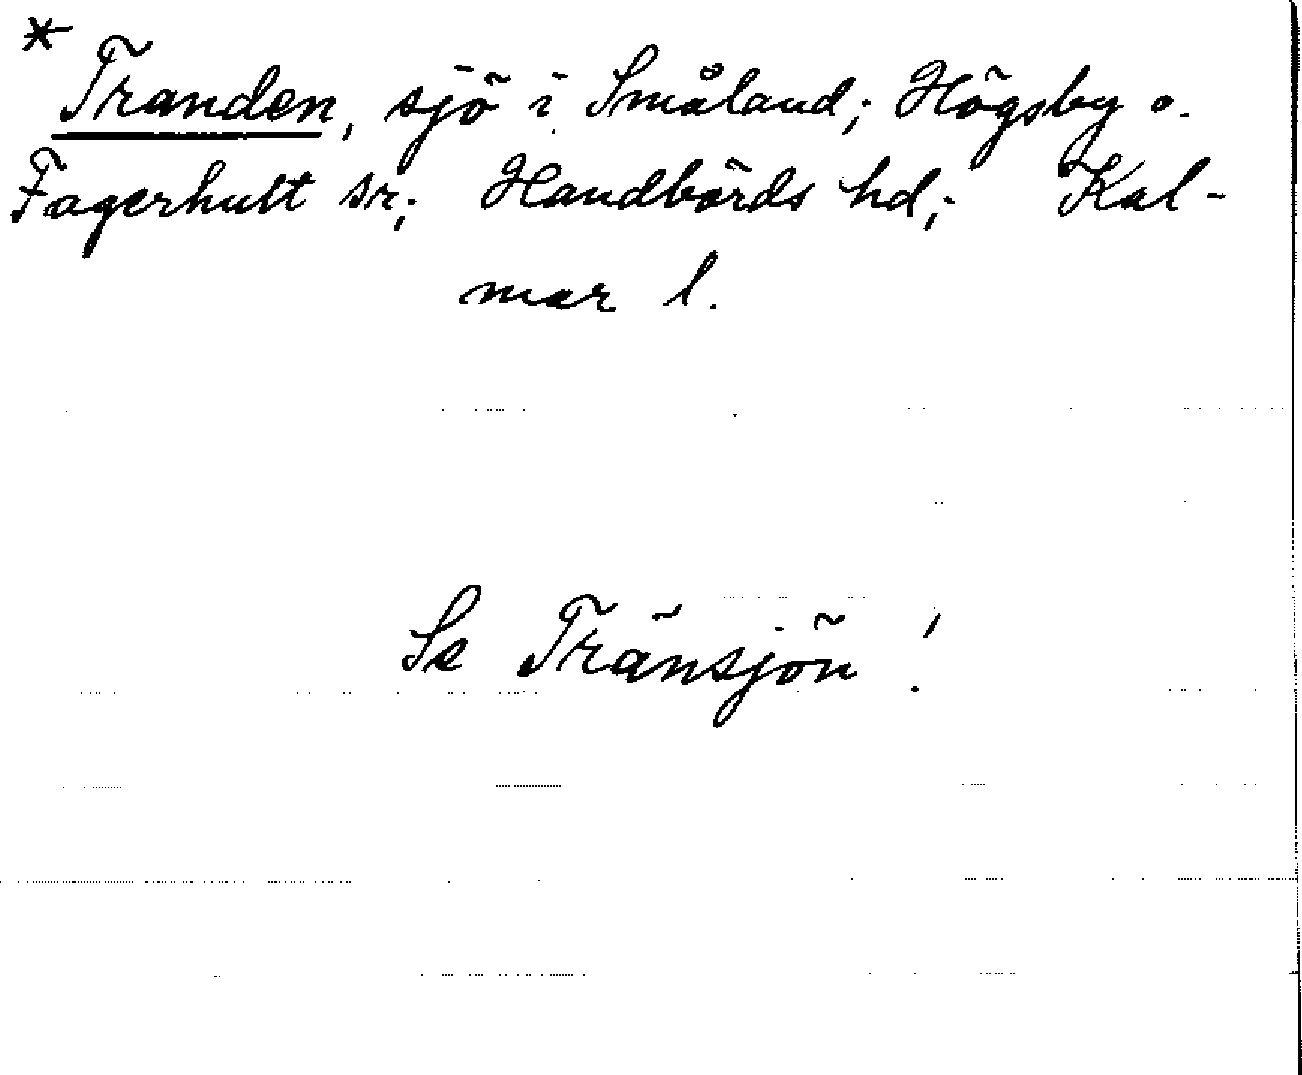 * Tranden, sjö i Småland; Högsby o.
Fagerhult sr; Handbörds hd; Kal-
mar l.
Se Tränsjön!